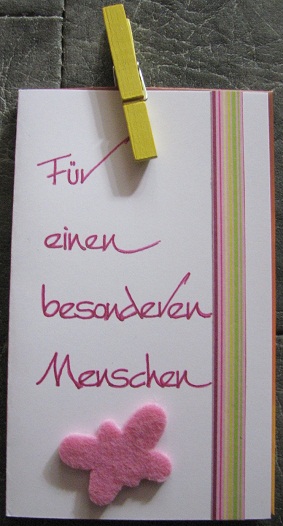 Für
einen
besonderen
Menschen